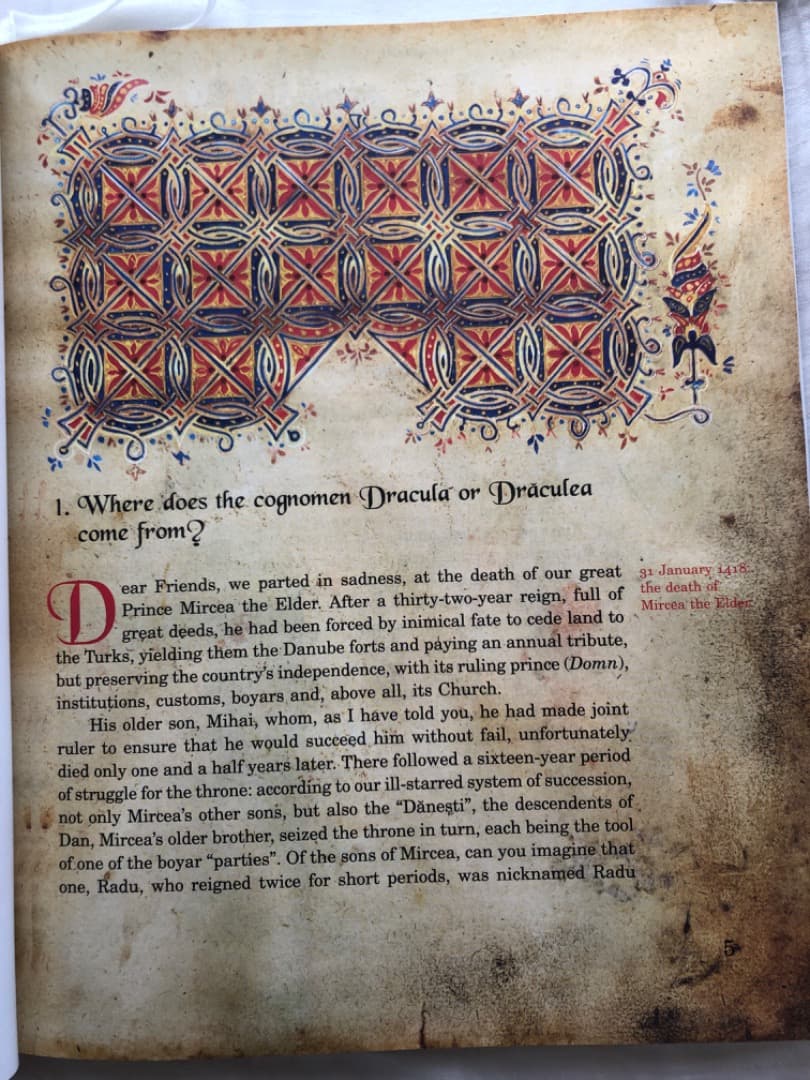 1. Where does the cognomen Dracula or Drăculea
come from?
Dear Friends, we parted in sadness, at the death of our great
Prince Mircea the Elder. After a thirty-two-year reign, full of
great deeds, he had been forced by inimical fate to cede land to
the Turks, yielding them the Danube forts and paying an annual tribute,
but preserving the country's independence, with its ruling prince (Domn),
institutions, customs, boyars and, above all, its Church.
31 January 1418.
the death of
Mircea the Elder.
His older son, Mihai, whom, as I have told you, he had made joint
ruler to ensure that he would succeed him without fail, unfortunately
died only one and a half years later. There followed a sixteen-year period
of struggle for the throne: according to our ill-starred system of succession,
not only Mircea's other sons, but also the “Dănești”, the descendents of
Dan, Mircea's older brother, seized the throne in turn, each being the tool
of one of the boyar “parties”. Of the sons of Mircea, can you imagine that
one, Radu, who reigned twice for short periods, was nicknamed Radu
5